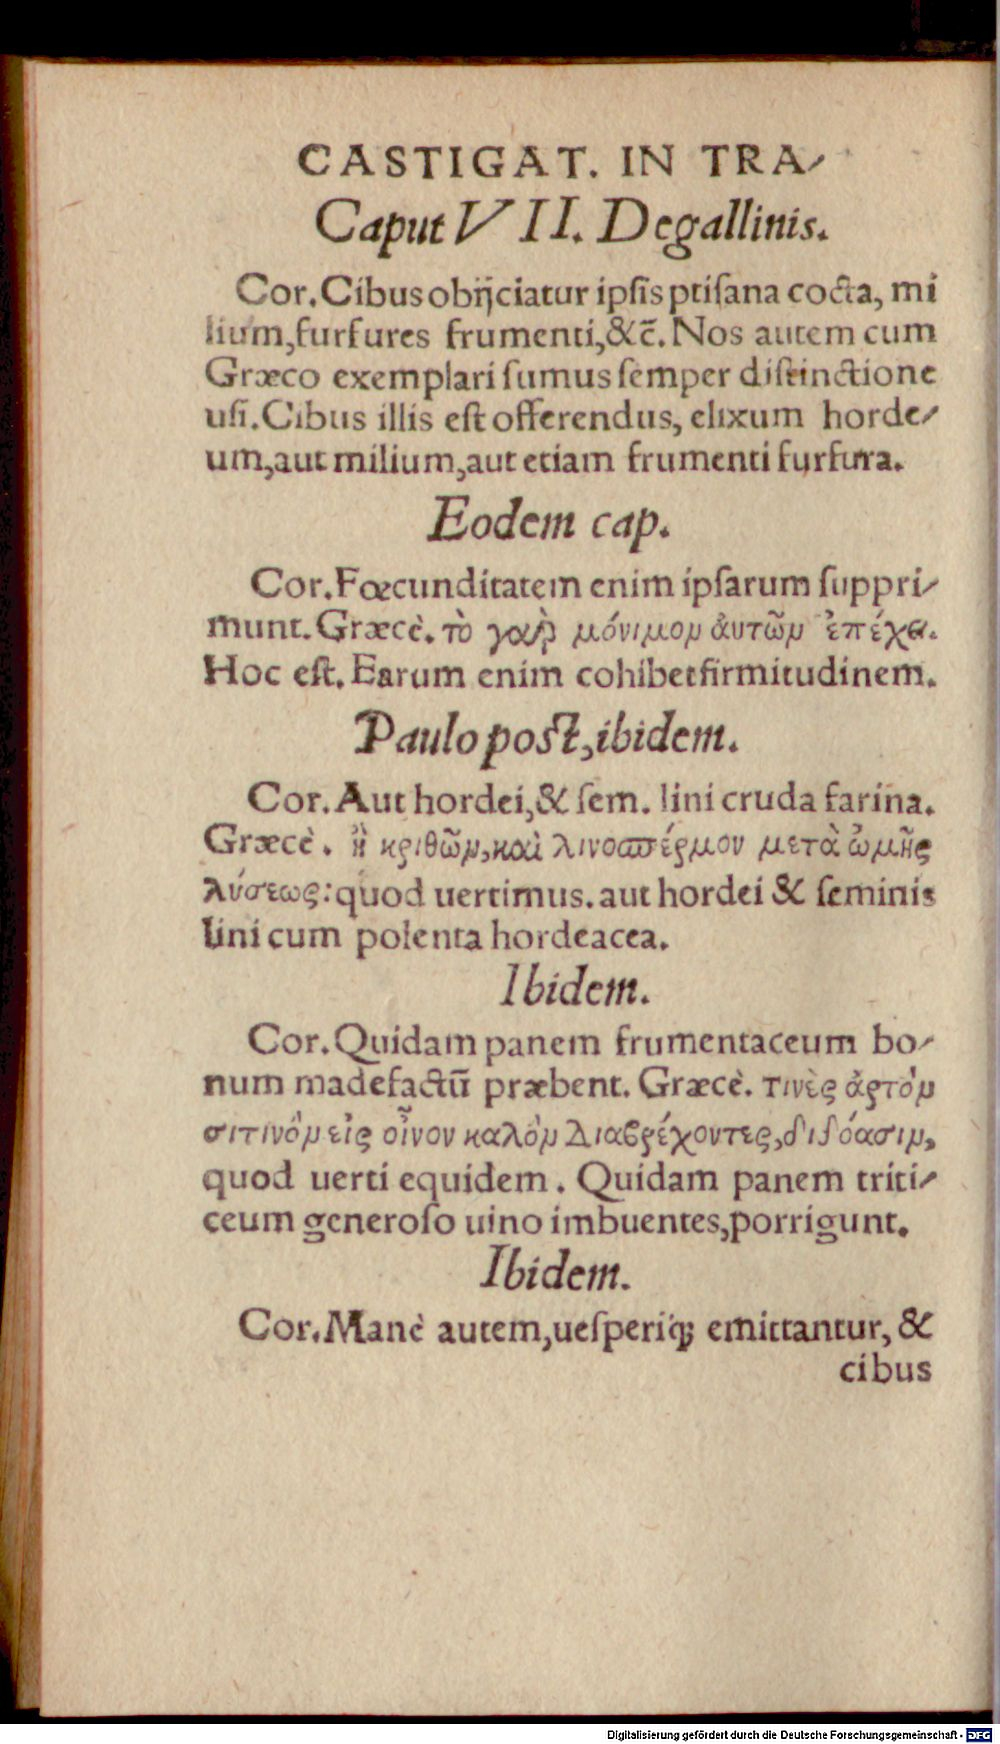 CASTIGAT. IN TRA-
Caput VII. De gallinis.
Cor. Cibus obijciatur ipsis ptisana cocta, mi
lium, furfures frumenti, &c̄. Nos autem cum
Græco exemplari sumus semper distinctione
usi. Cibus illis est offerendus, elixum horde-
um, aut milium, aut etiam frumenti furfura.
Eodem cap.
Cor. Fœcunditatem enim ipsarum suppri-
munt. Græcè. τὸ γαρ̀ μόνιμον ἀυτῶν ἐπέχει.
Hoc est. Earum enim cohibet firmitudinem.
Paulo post, ibidem.
Cor. Aut hordei, & sem. lini cruda farina.
Græcè. ἢ κριθῶν, καὶ λινοσπέρμον μετὰ ὠμῆς
λύσεως: quod uertimus. aut hordei & seminis
lini cum polenta hordeacea.
Ibidem.
Cor. Quidam panem frumentaceum bo-
num madefactū præbent. Græcè. τινὲς ἄρτὸν
σιτινὸν εἰς οἶνον καλὸν διαβρέχοντες, διδόασιν,
quod uerti equidem. Quidam panem triti-
ceum generoso uino imbuentes, porrigunt.
Ibidem.
Cor. Manè autem, uesperiq; emittantur, &
cibus
Digitalisierung gefördert durch die Deutsche Forschungsgemeinschaft - DFG